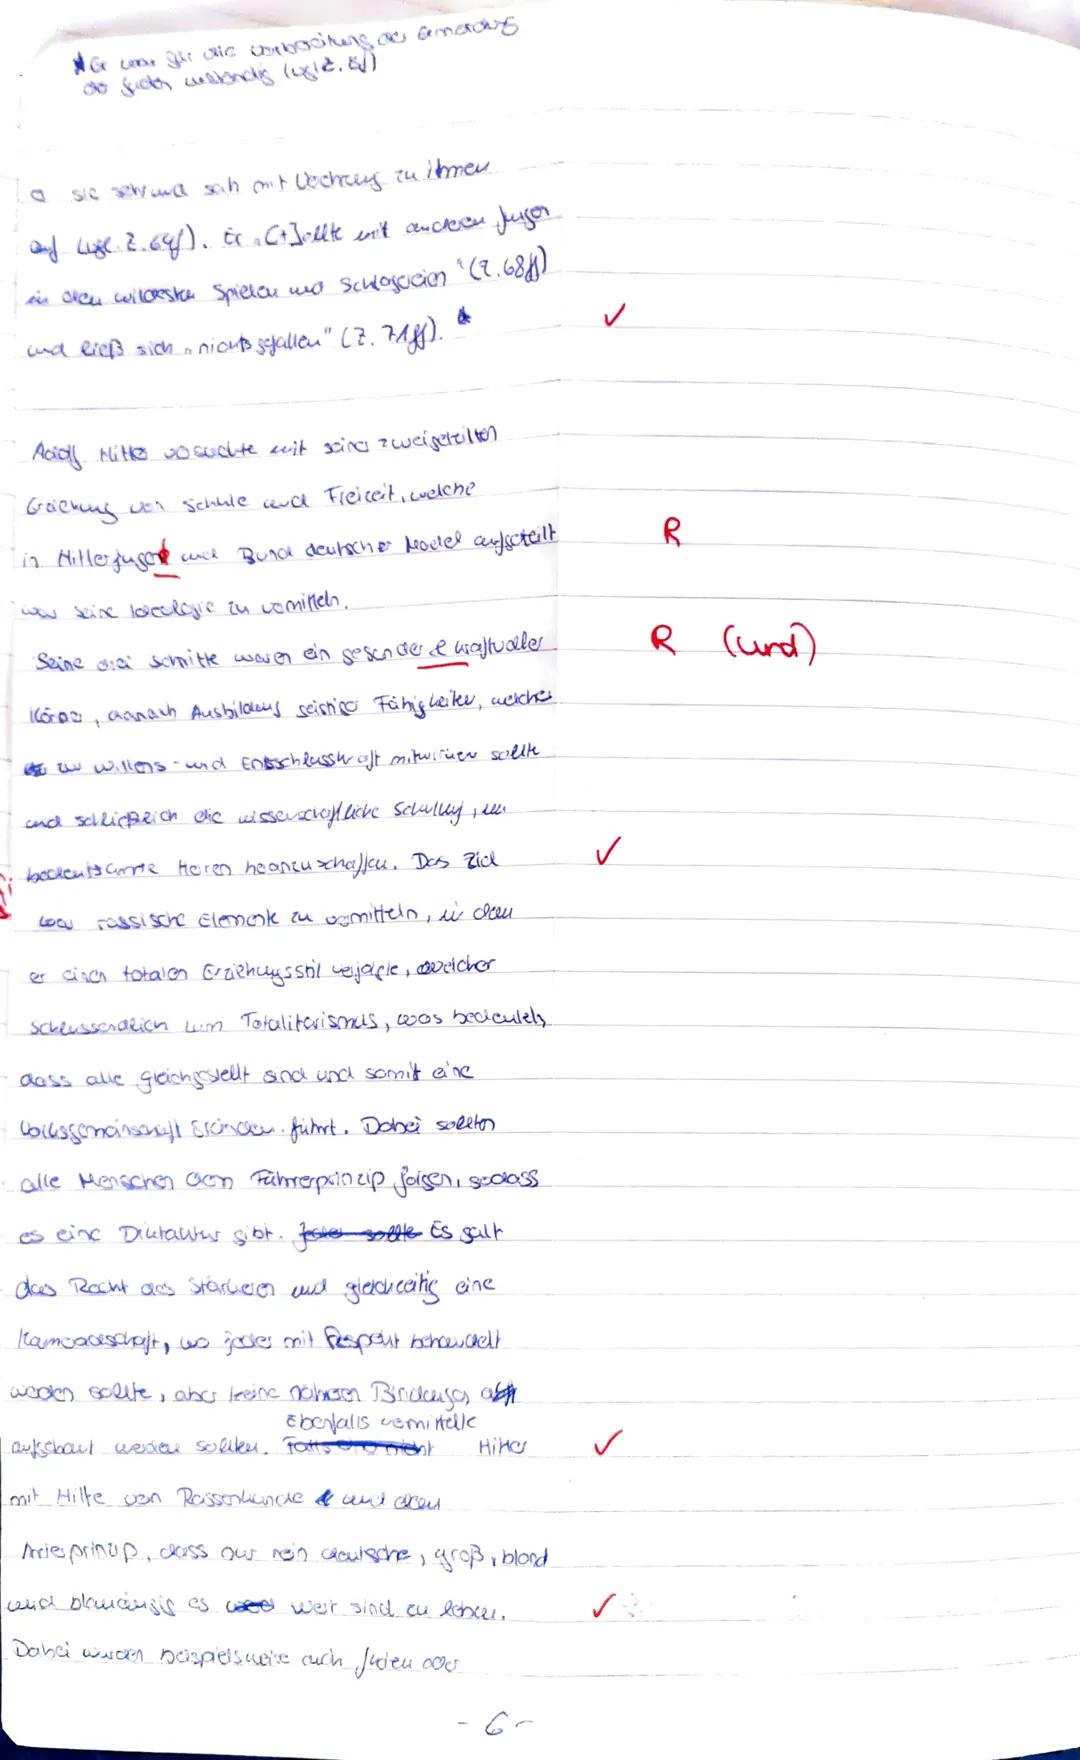 *Er war für die Vorbereitung der Ermordung
der Juden zuständig (vgl. Z. 8f)
sie sehr und sah mit Verehrung zu ihnen
auf (vgl. Z. 64f). Er „[t]ollte mit anderen Jungen
in den wildesten Spielen und Schlägereien" (Z. 68ff)
und ließ sich „nichts gefallen" (Z. 71ff).
✓
Adolf Hitler versuchte mit seiner zweigeteilten
Erziehung von Schule und Freizeit, welche
in Hitlerjugend und Bund deutscher Mädel aufgeteilt
R
war seine Ideologie zu vermitteln.
Seine drei Schritte waren ein gesunder & kraftvoller
R (und)
Körper, danach Ausbildung geistiger Fähigkeiten, welches
zur Willens- und Entschlusskraft mitwirken sollte
und schließlich die wissenschaftliche Schulung, um
bedeutsame Herren heranzuschaffen. Das Ziel
✓
war rassische Elemente zu vermitteln, in dem
er einen totalen Erziehungsstil verfolgte, welcher
schlussendlich zum Totalitarismus, was bedeutet,
dass alle gleichgestellt sind und somit eine
Volksgemeinschaft führt. Dabei sollten
alle Menschen dem Führerprinzip folgen, sodass
es eine Diktatur gibt. Jeder sollte Es galt
das Recht des Stärkeren und gleichzeitig eine
Kameradschaft, wo jeder mit Respekt behandelt
werden sollte, aber keine näheren Bindungen
Ebenfalls vermittelte
aufgebaut werden sollten. Hitler
✓
mit Hilfe von Rassenkunde und dem
Arierprinzip, dass nur rein deutsche, groß, blond
und blauäugig es wert sind zu leben.
✓
Dabei wurden beispielsweise auch Juden oder
- 6 -